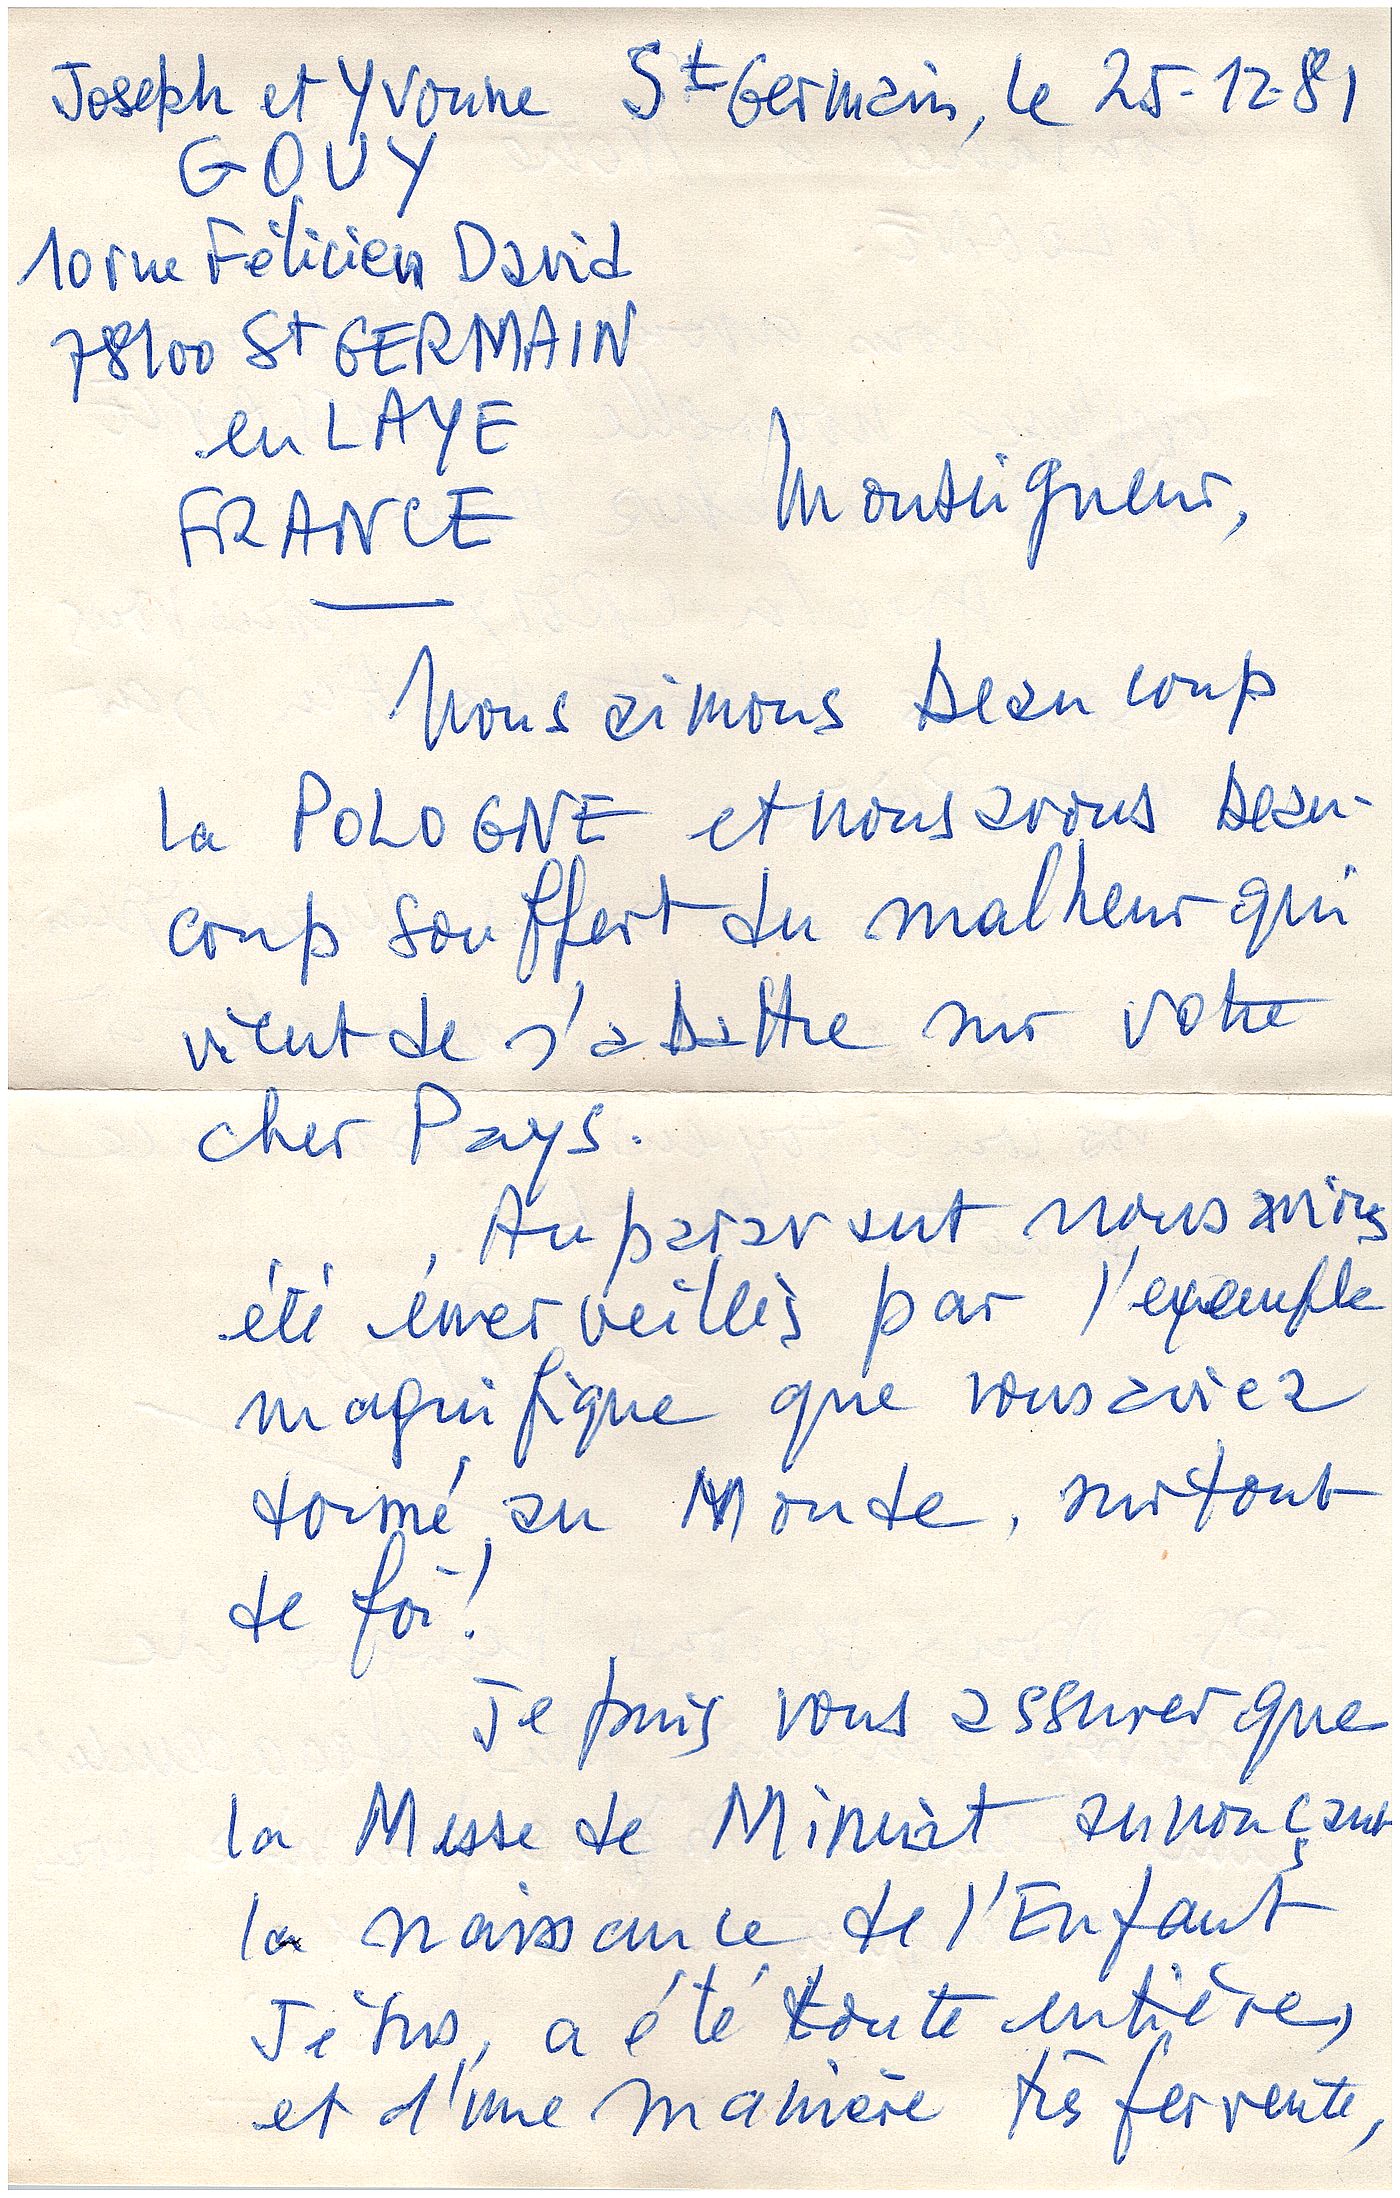 Joseph et Yvonne St Germain, le 25-12-81
GOUY
10 rue Félicien David
78100 St GERMAIN
en LAYE
FRANCE
Monseigneur,
Nous aimons beaucoup
la POLOGNE et nous avons beau-
coup souffert du malheur qui
vient de s'abattre sur votre
cher Pays.
Auparavant nous avions
été émerveillés par l'exemple
magnifique que vous aviez
donné au Monde, surtout
de foi!
Je puis vous assurer que
la Messe de Minuit annonçant
la naissance de l'Enfant
Jésus, a été toute entière,
et d'une manière très fervente,